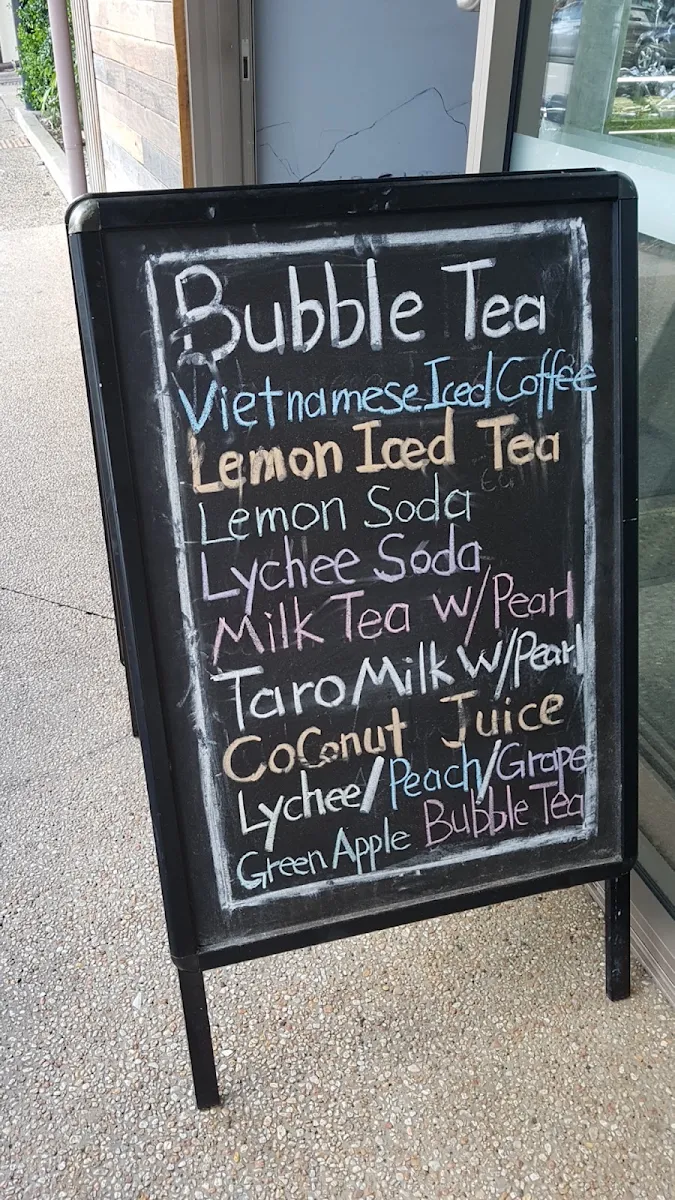 Bubble Tea
Vietnamese Iced Coffee
Lemon Iced Tea
Lemon Soda
Lychee Soda
Milk Tea w/Pearl
Taro Milk w/Pearl
Coconut Juice
Lychee/Peach/Grape
Green Apple Bubble Tea